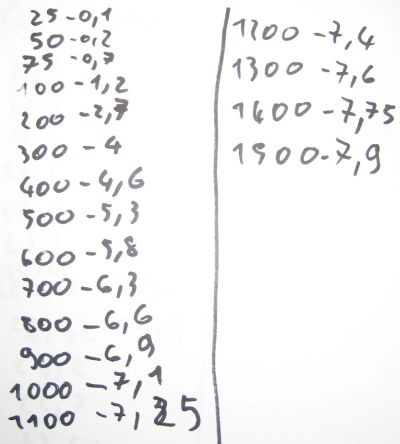 25-0,1
50-0,2
75-0,7
100-1,2
200-2,7
300-4
400-4,6
500-5,3
600-5,8
700-6,3
800-6,6
900-6,9
1000-7,1
1100-7,25
1200-7,4
1300-7,6
1400-7,75
1500-7,9